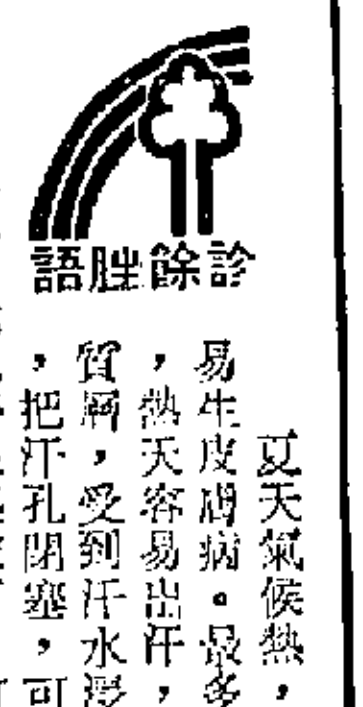 診餘脞語
夏天氣候熱，
易生皮膚病。最多
，熱天容易出汗，
質屑，受到汗水浸
，把汗孔閉塞，可